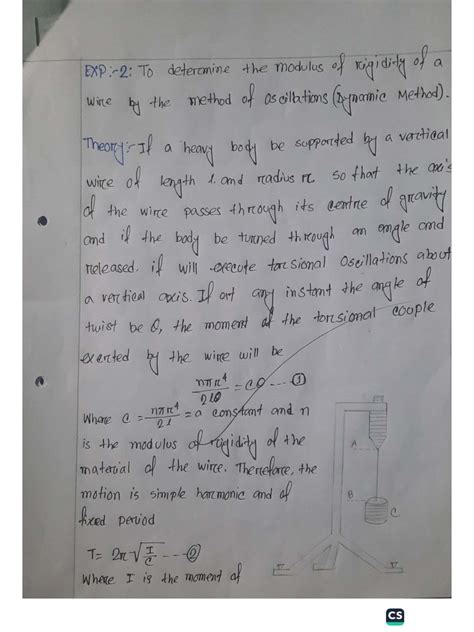 EXP:-2: To determine the modulus of rigidity of a
wire by the method of oscillations (Dynamic Method).
Theory:- If a heavy body be supported by a vertical
wire of length l and radius r so that the axis
of the wire passes through its centre of gravity
and if the body be turned through an angle and
released, it will execute torsional oscillations about
a vertical axis. If at any instant the angle of
twist be θ, the moment of the torsional couple
exerted by the wire will be
nπr⁴/2lθ = Cθ ---- ①
Where C = nπr⁴/2l = a constant and n
is the modulus of rigidity of the
material of the wire. Therefore, the
motion is simple harmonic and of
fixed period
T = 2π√(I/C) ---- ②
Where I is the moment of
A
B
C
CS